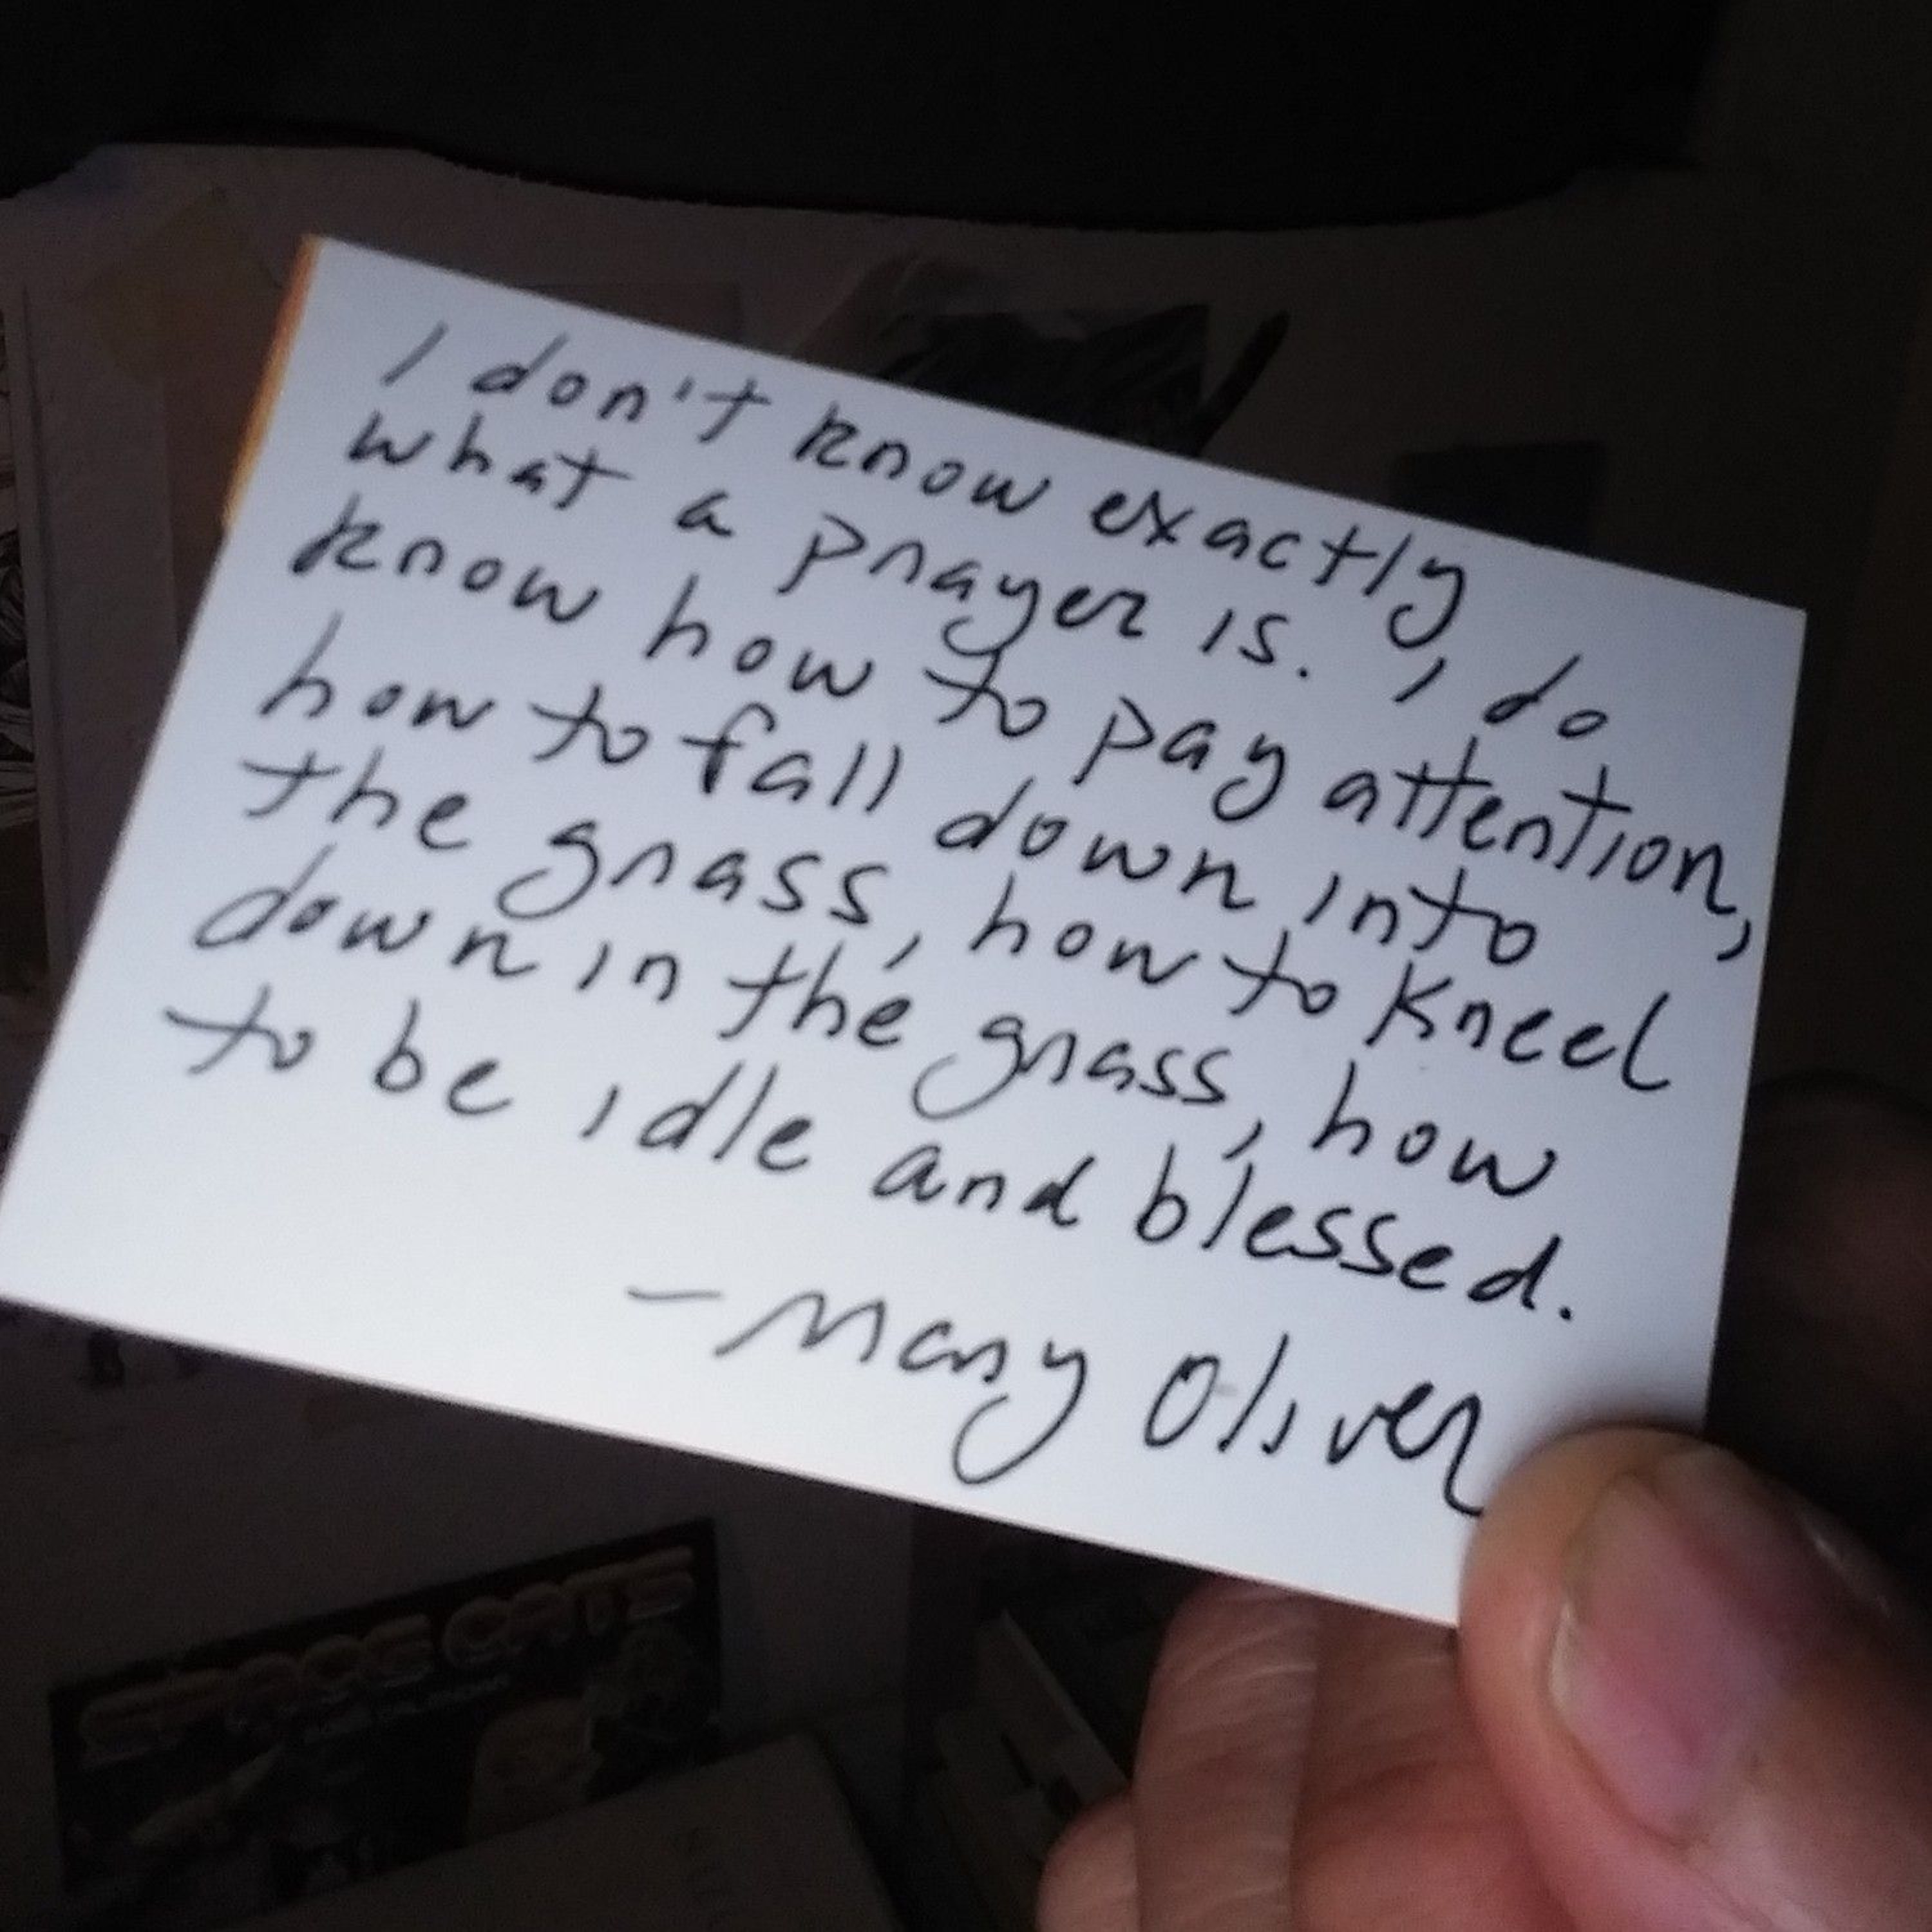 I don't know exactly
what a prayer is. I do
know how to pay attention,
how to fall down into
the grass, how to kneel
down in the grass, how
to be idle and blessed.
—Mary Oliver
SPACE CATS